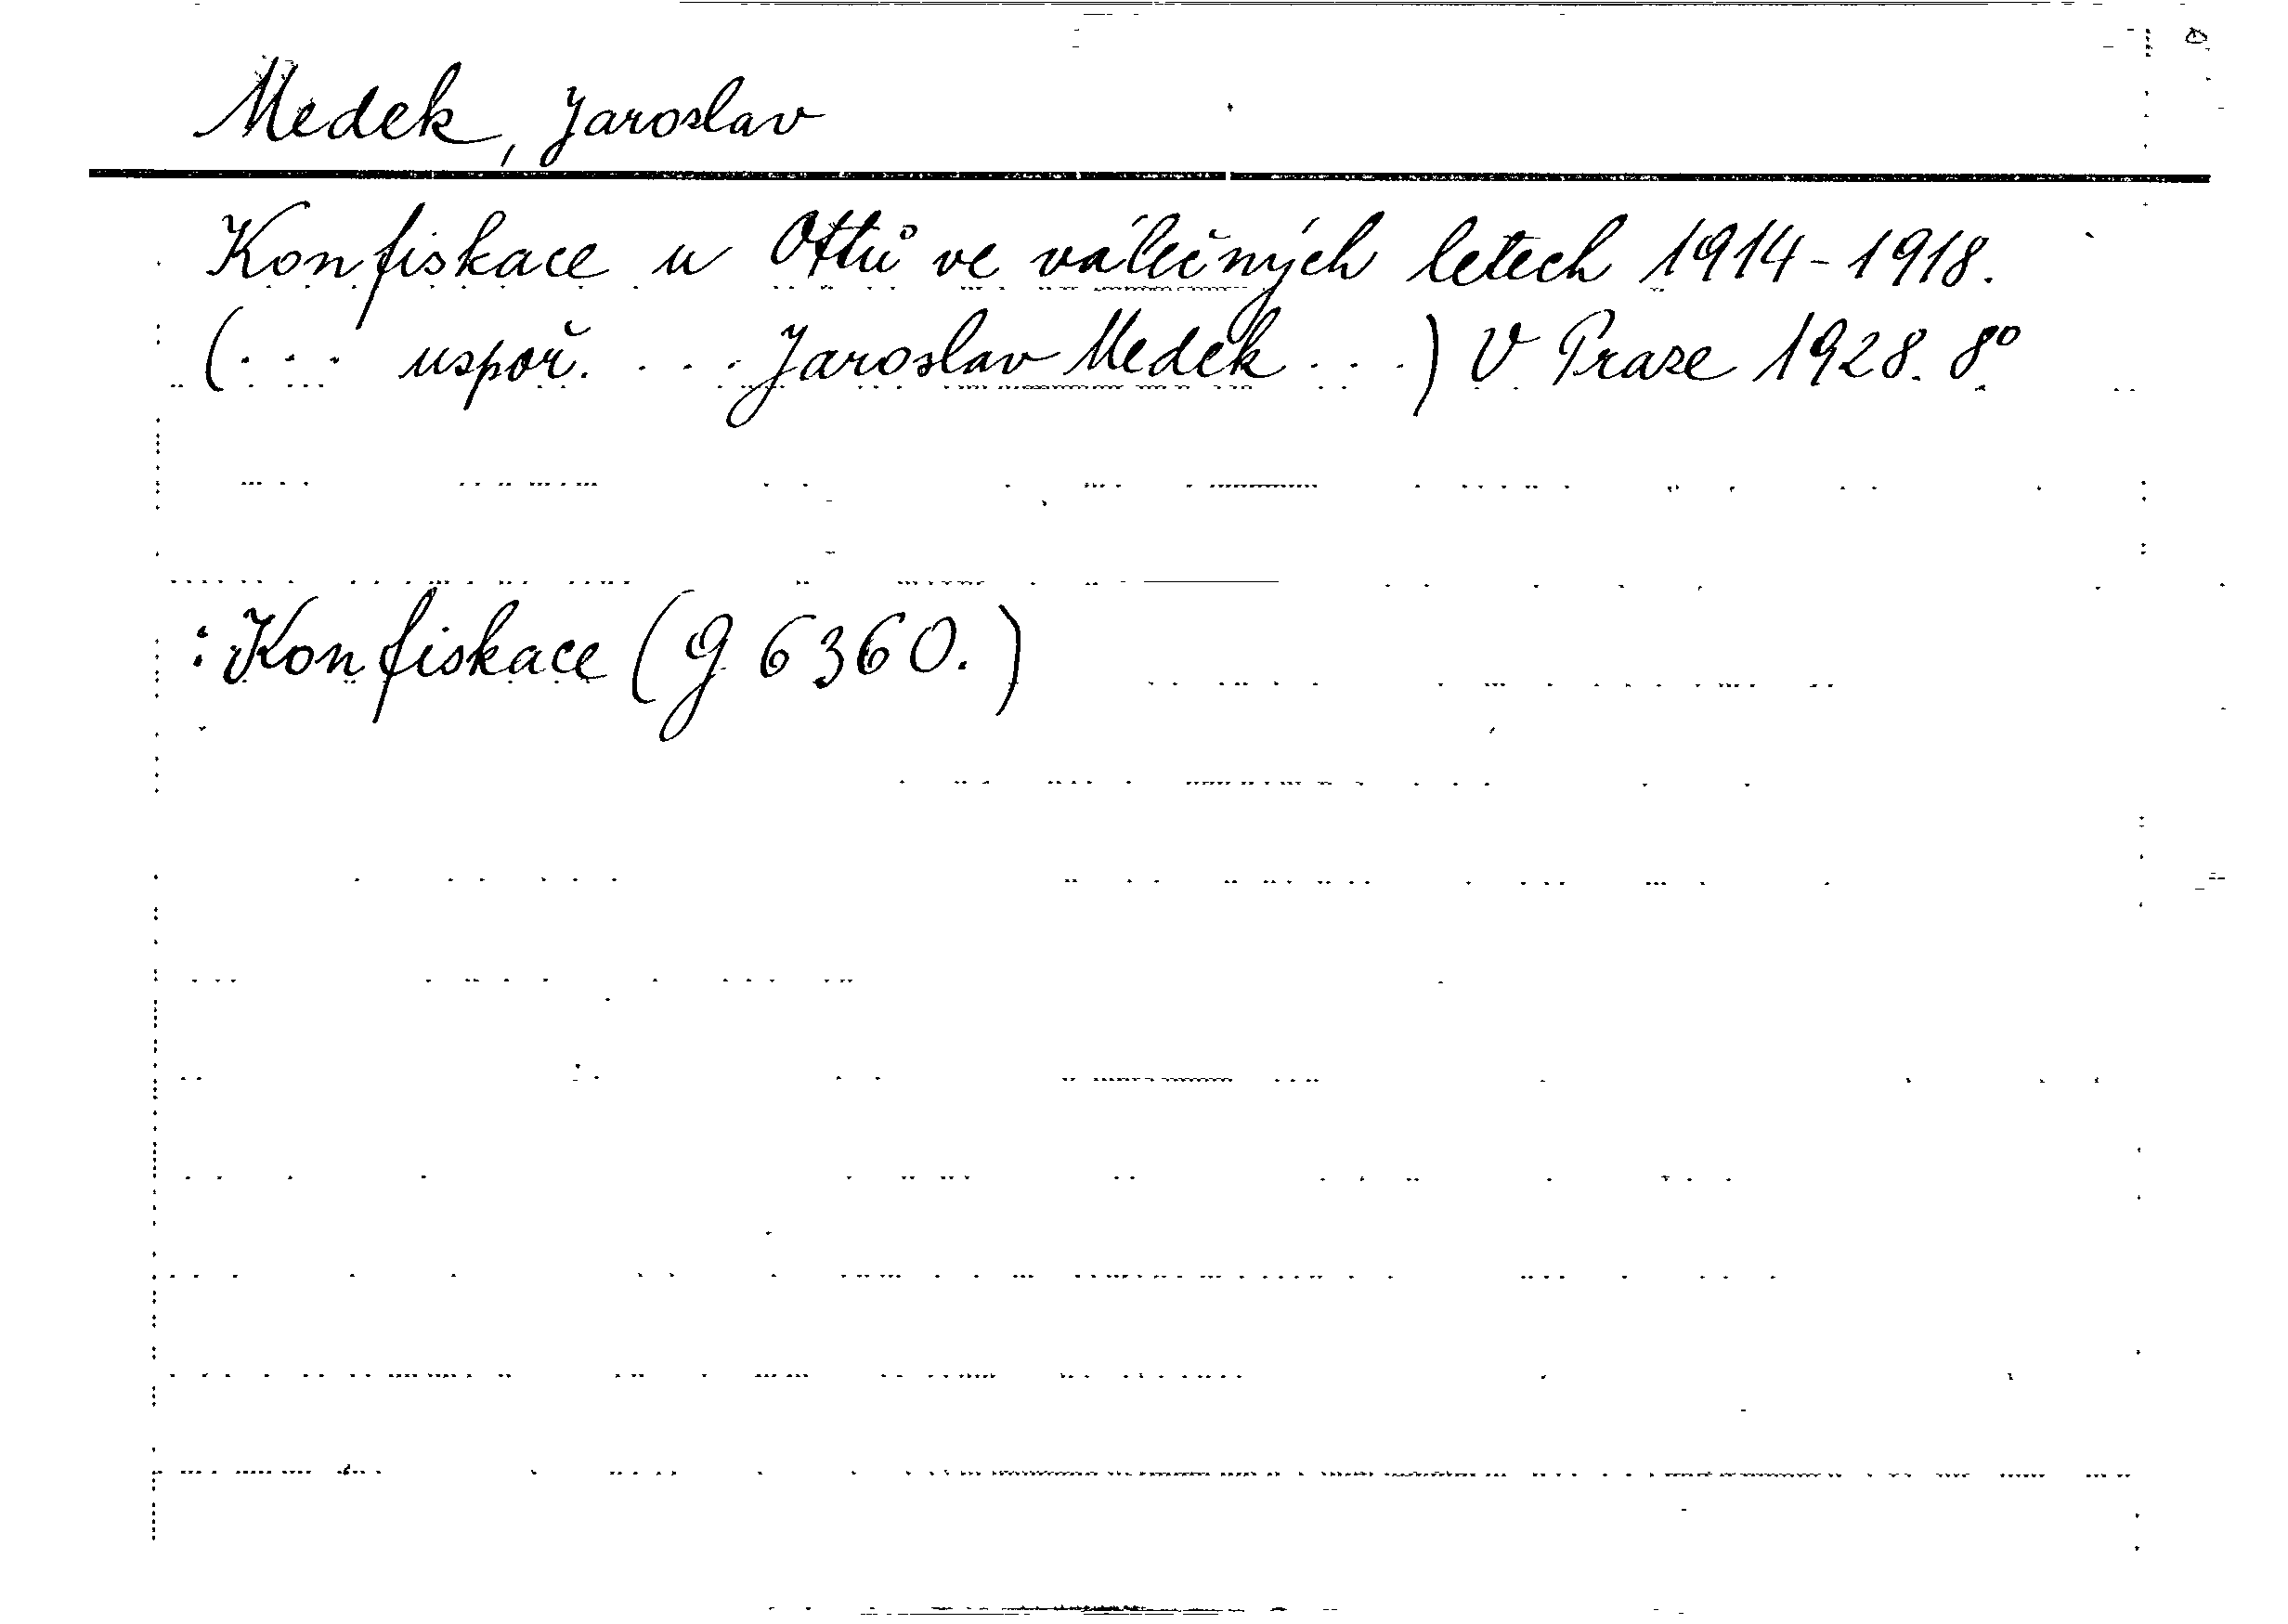 Medek, Jaroslav
Konfiskace u Ottů ve válečných letech 1914-1918.
(... uspoř. ... Jaroslav Medek ...) V Praze 1928. 8°
: Konfiskace (g 6360.)